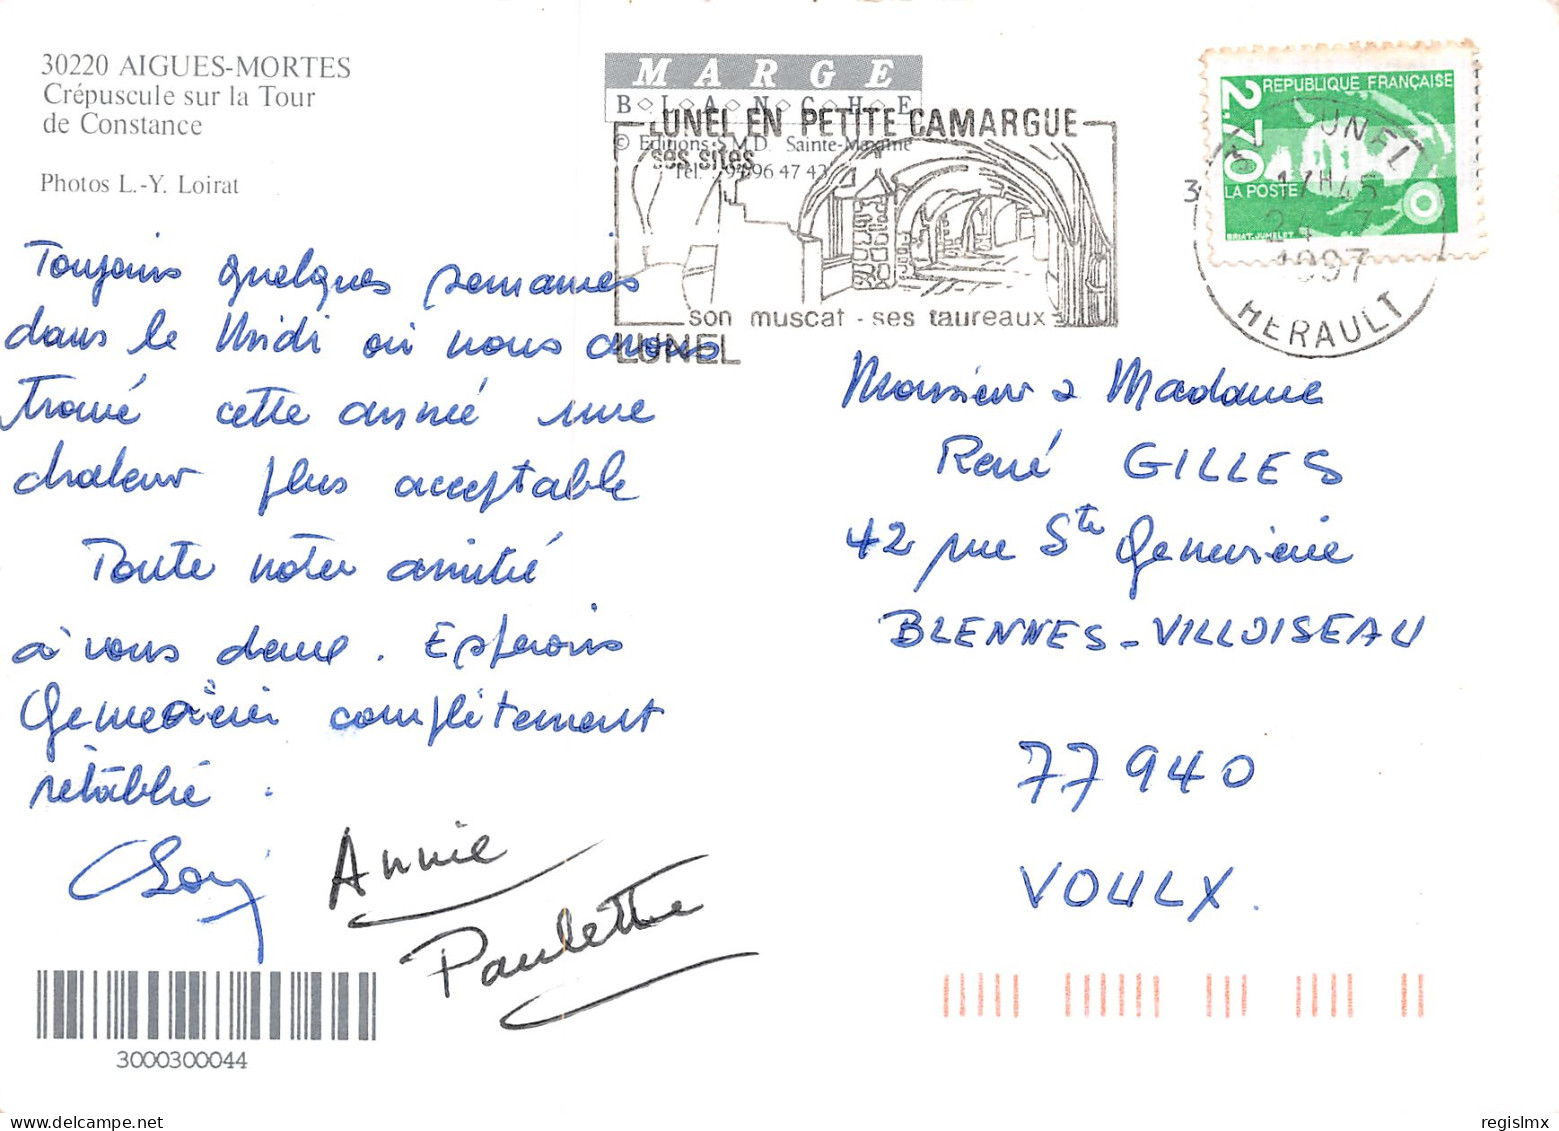 30220 AIGUES-MORTES
Crépuscule sur la Tour
de Constance
Photos L.-Y. Loirat
MARGE
BLANCHE
© Editions S.M.D. Sainte-Maxime
Tél. 94 96 47 43
LUNEL EN PETITE CAMARGUE
ses sites
son muscat - ses taureaux
LUNEL
REPUBLIQUE FRANÇAISE
2,70
LA POSTE
BRIAT-JUMELET
LUNEL
17H45
24-7
1997
HERAULT
Toujours quelques semaines
dans le Midi où nous avons
trouvé cette année une
chaleur plus acceptable
Toute notre amitié
à vous deux. Espérons
Geneviève complètement
rétablie.
Annie
Paulette
Monsieur & Madame
René GILLES
42 rue Ste Geneviève
BLENNES-VILLOISEAU
77940
VOULX.
3000300044
regislmx